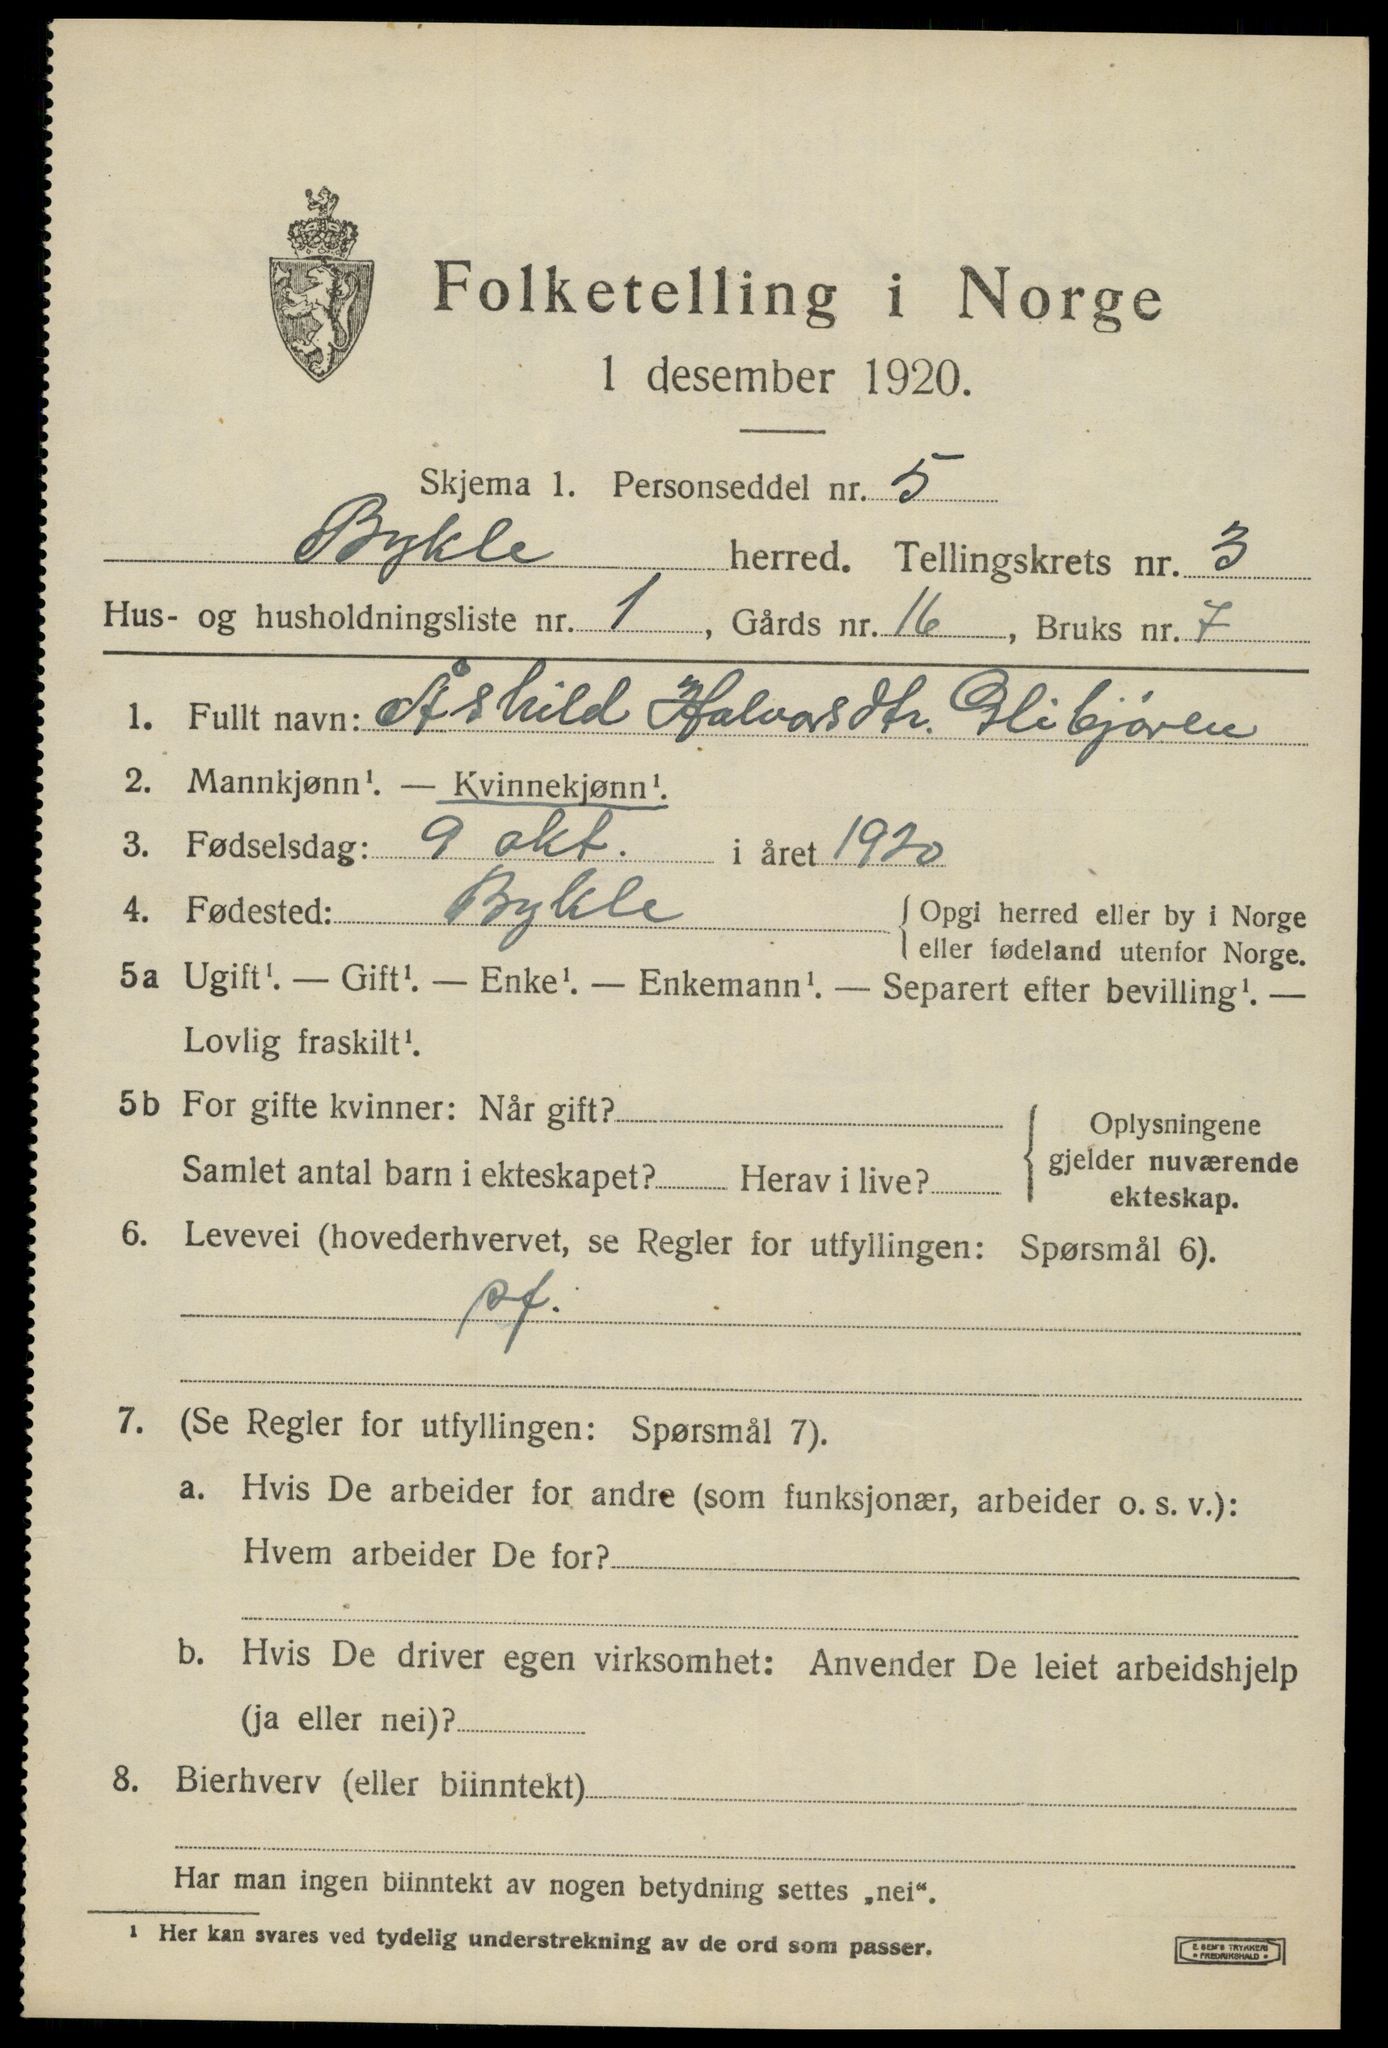 Folketelling i Norge
1 desember 1920.
Skjema 1. Personseddel nr. 5
Bykle herred. Tellingskrets nr. 3
Hus- og husholdningsliste nr. 1, Gårds nr. 16, Bruks nr. 7
1. Fullt navn: Åshild Halvorsdtr. Glibjøren
2. Mannkjønn¹. — Kvinnekjønn¹.
3. Fødselsdag: 9 okt. i året 1920
4. Fødested: Bykle { Opgi herred eller by i Norge
eller fødeland utenfor Norge.
5a Ugift¹. — Gift¹. — Enke¹. — Enkemann¹. — Separert efter bevilling¹. —
Lovlig fraskilt¹.
5b For gifte kvinner: Når gift?
Samlet antal barn i ekteskapet? Herav i live?
{ Oplysningene
gjelder nuværende
ekteskap.
6. Levevei (hovederhvervet, se Regler for utfyllingen: Spørsmål 6).
pf.
7. (Se Regler for utfyllingen: Spørsmål 7).
a. Hvis De arbeider for andre (som funksjonær, arbeider o. s. v.):
Hvem arbeider De for?
b. Hvis De driver egen virksomhet: Anvender De leiet arbeidshjelp
(ja eller nei)?
8. Bierhverv (eller biinntekt)
Har man ingen biinntekt av nogen betydning settes „nei“.
¹ Her kan svares ved tydelig understrekning av de ord som passer.
E. SEM'S TRYKKERI
• FREDRIKSHALD •